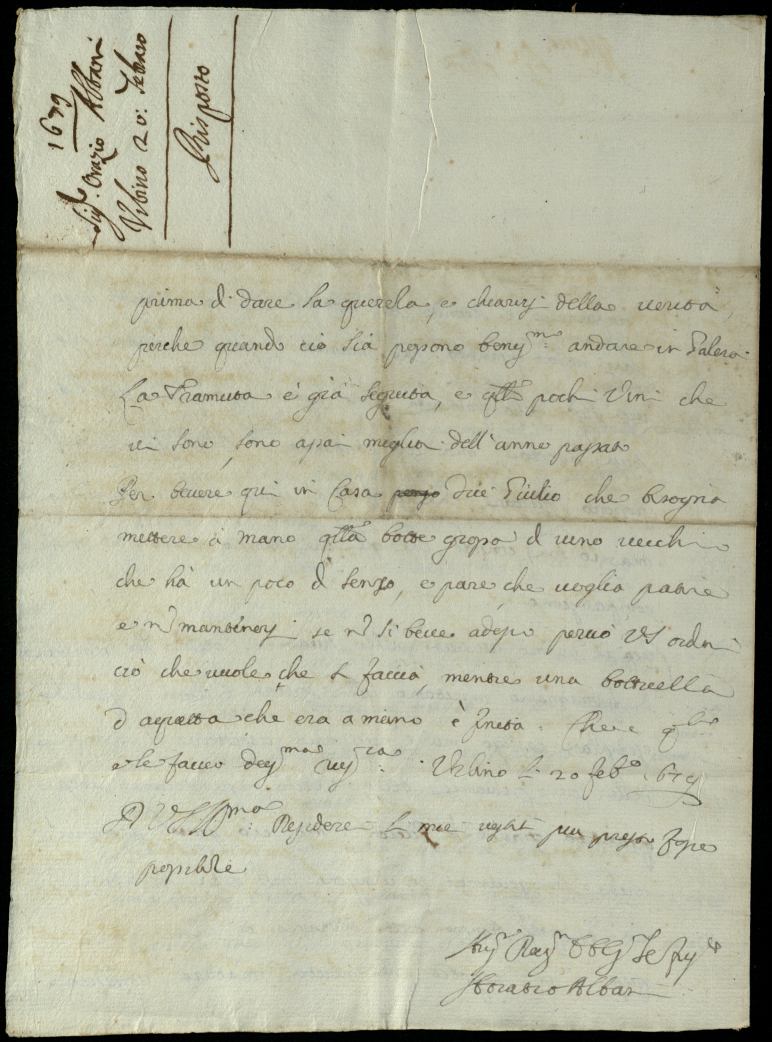 1679
Sig.r Orazio Albani
Urbino 20: Febraro
Risposto
prima di dare la querela, e chiarirsi della verità,
perche quando ciò sia possono beniss.mo andare in Galera
La Tramuta è già seguita, e q.lli pochi Vini che
vi sono, sono assai meglio dell'anno passato
Per bevere qui in Casa dice Giulio che bisogna
mettere à mano q.lla botte grossa di vino vecchio
che hà un poco di senso, e pare che voglia patire
e n.n mantenersi se n.n si beve adesso perciò VS ordini
ciò che vuole che si faccia, mentre una botticella
d'aquetta che era a mano è finita. Che
le faccio Urbino li 20 feb.o 1679
A VS Ill.ma possa
possibile
Horatio Albani